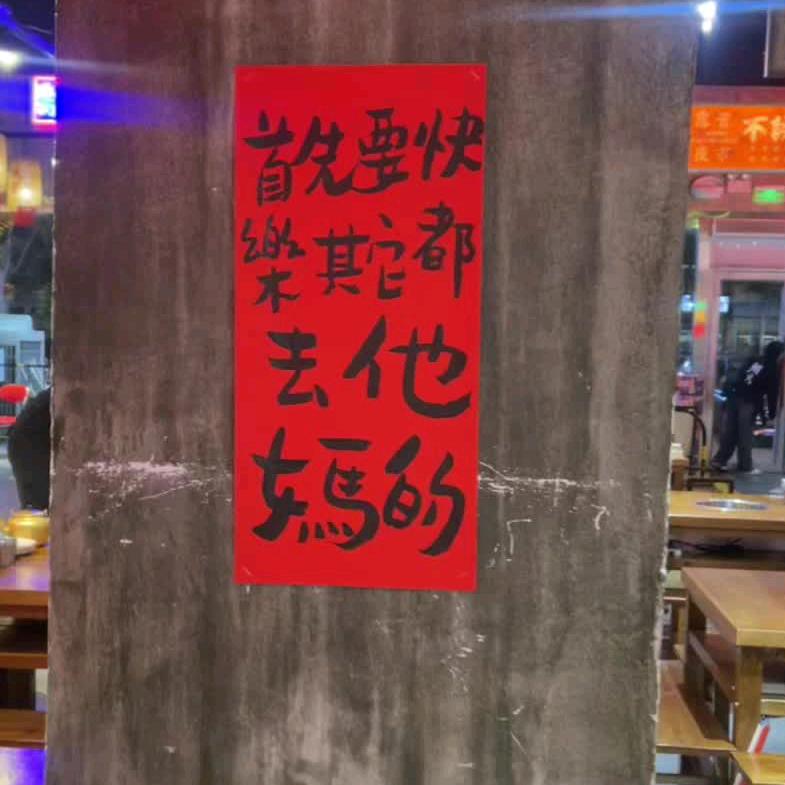 首先要快
樂其它都
去他
媽的
不